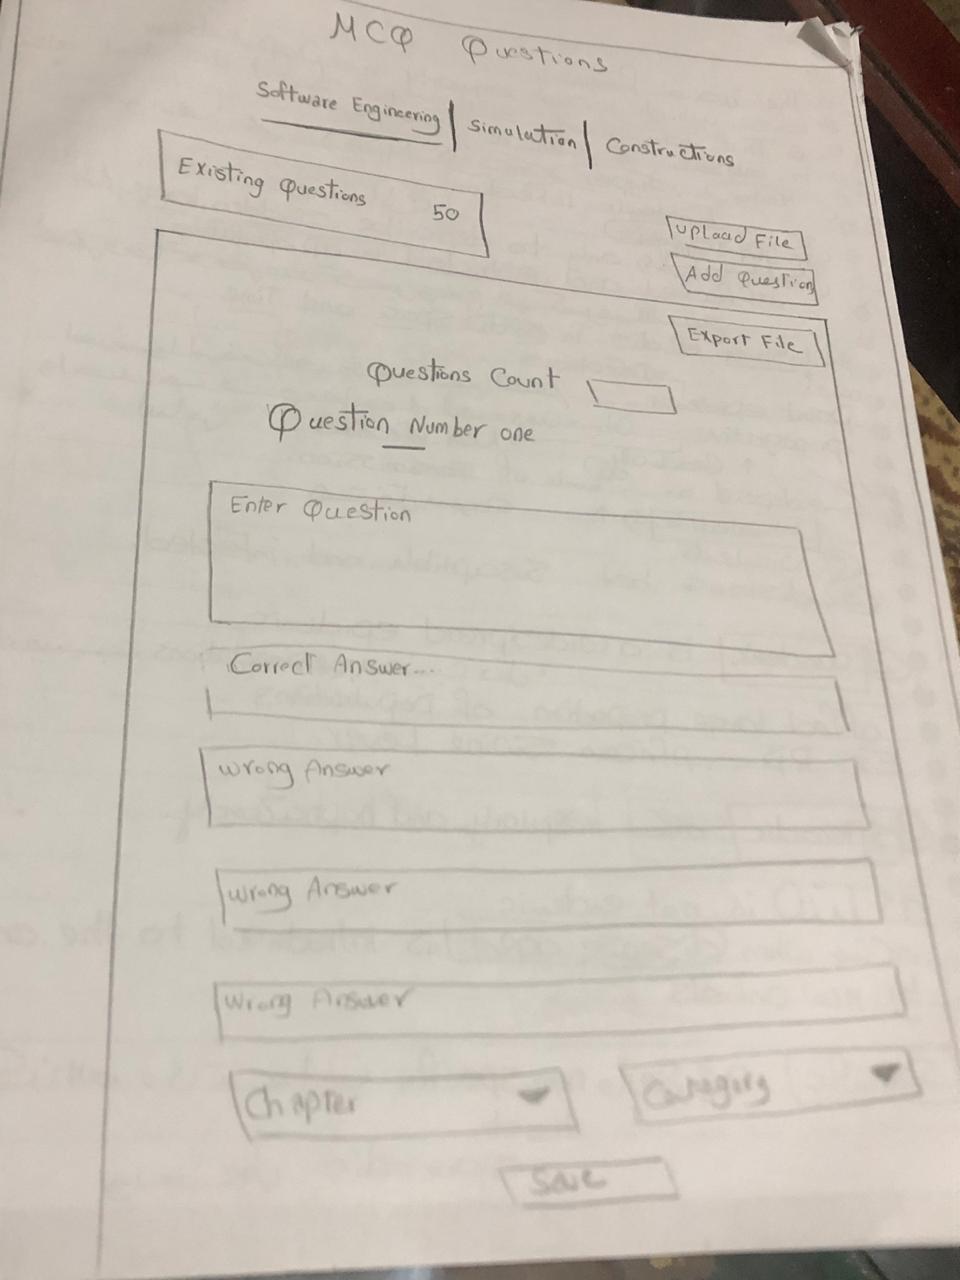 MCQ Questions
Software Engineering | Simulation | Constructions
Existing Questions 50
Upload File
Add Question
Export File
Questions Count
Question Number one
Enter Question
Correct Answer...
Wrong Answer
Wrong Answer
Wrong Answer
Chapter
Category
Save